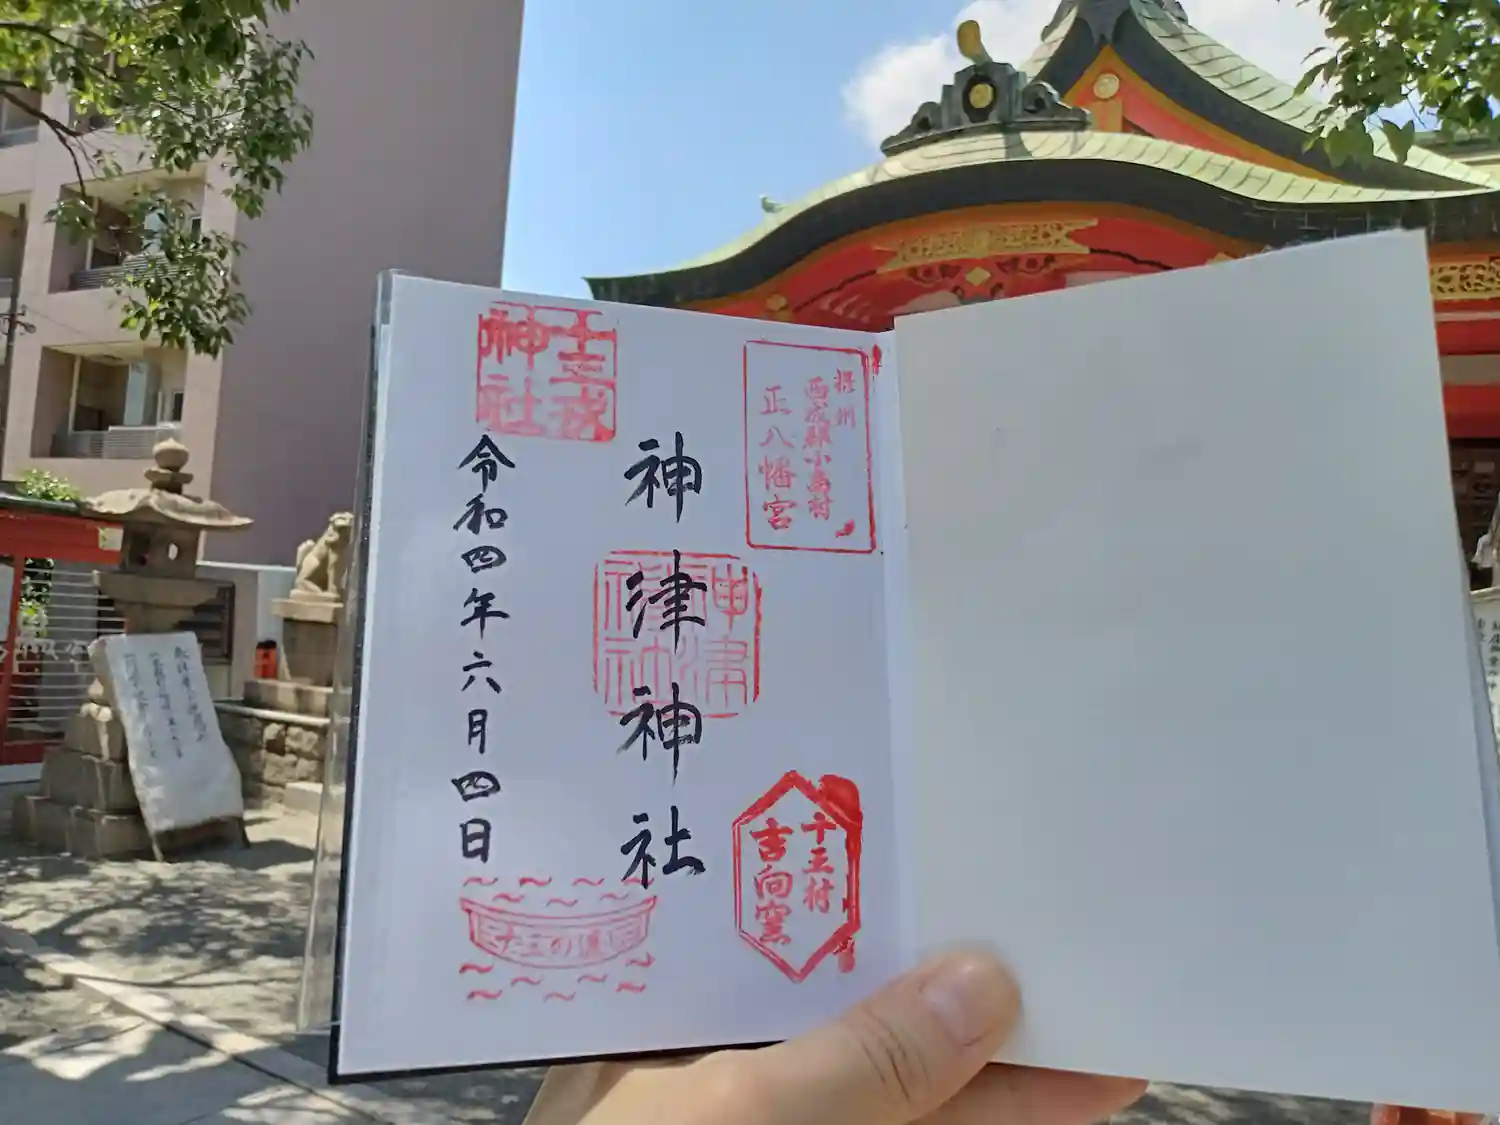 摂州
西成郡小島村
正八幡宮
神津神社
神津
神社
十三村
吉向窯
十三戎
神社
令和四年六月四日
十三の渡し